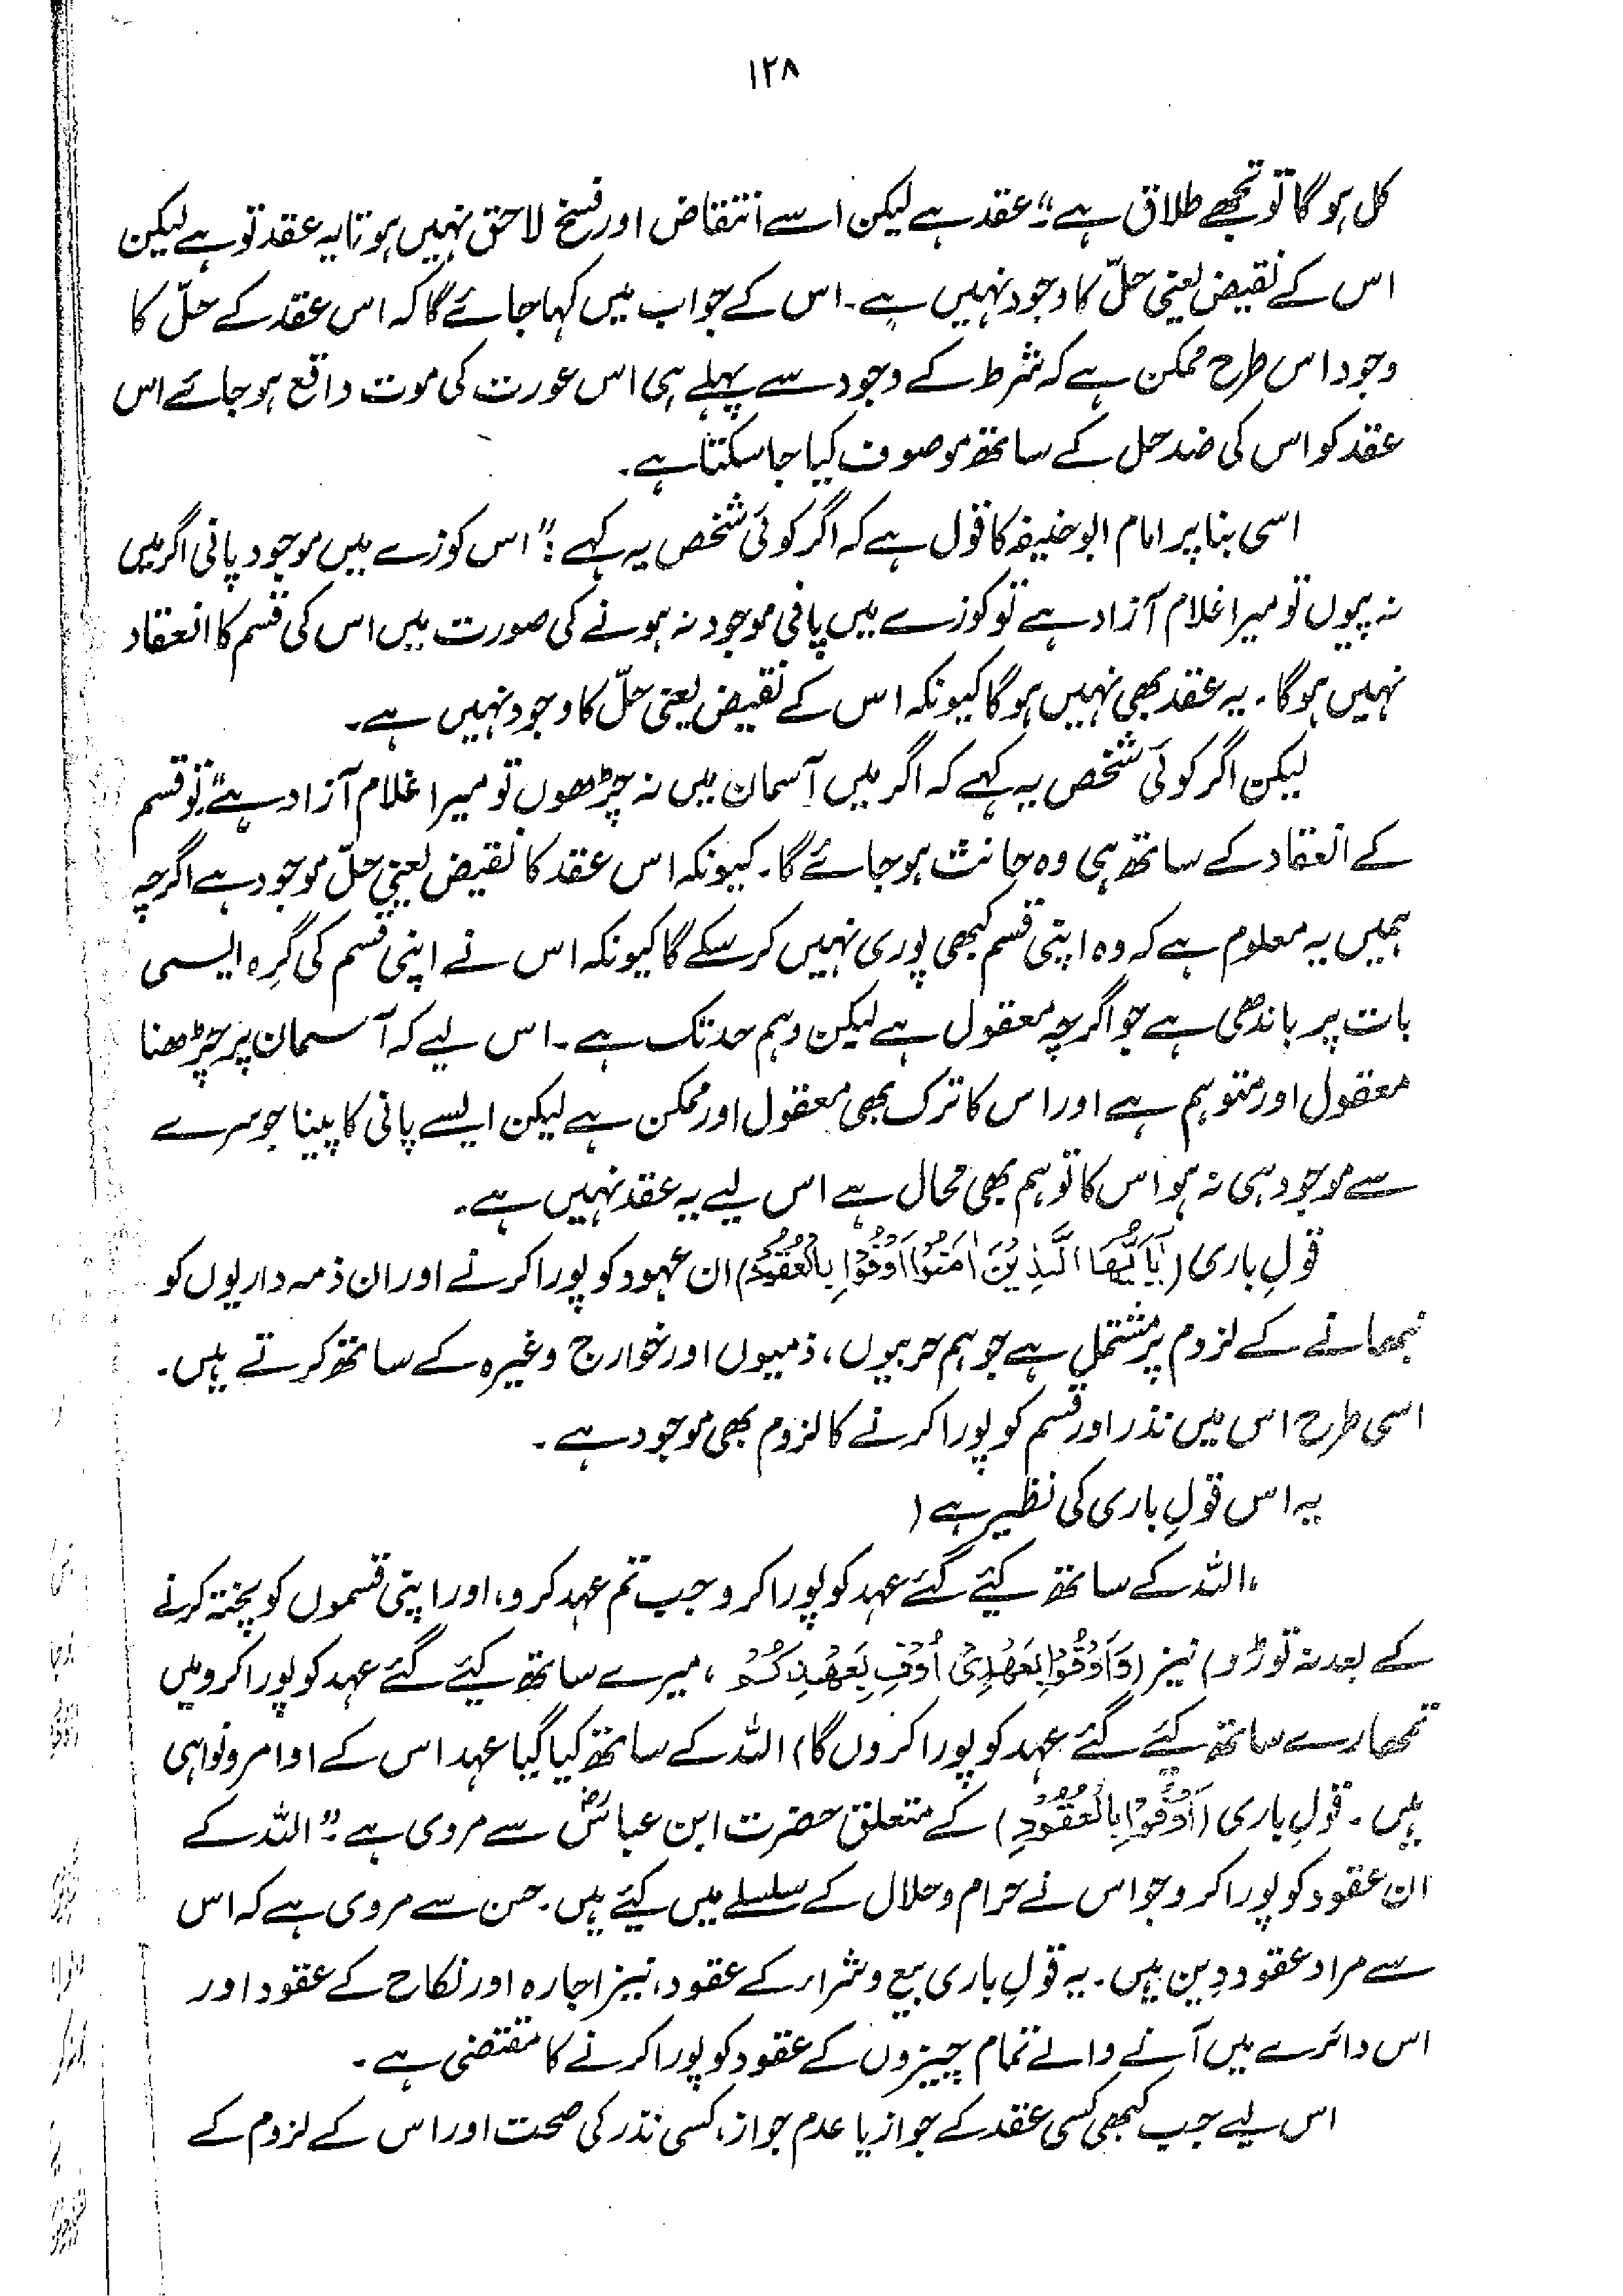 ۱۲۸
کل ہوگا تو تجھے طلاق ہے"؛ عقد ہے لیکن اسے انتقاض اور فسخ لاحق نہیں ہوتا یہ عقد تو ہے لیکن
اس کے نقیض یعنی حلّ کا وجود نہیں ہے۔ اس کے جواب میں کہا جائے گا کہ اس عقد کے حلّ کا
وجود اس طرح ممکن ہے کہ شرط کے وجود سے پہلے ہی اس عورت کی موت واقع ہو جائے اس
عقد کو اس کی ضد حل کے ساتھ موصوف کیا جا سکتا ہے۔
اسی بنا پر امام ابوحنیفہ کا قول ہے کہ اگر کوئی شخص یہ کہے: "اس کوزے میں موجود پانی اگر میں
نہ پیوں تو میرا غلام آزاد ہے تو کوزے میں پانی موجود نہ ہونے کی صورت میں اس کی قسم کا انعقاد
نہیں ہوگا۔ یہ عقد بھی نہیں ہوگا کیونکہ اس کے نقیض یعنی حلّ کا وجود نہیں ہے۔
لیکن اگر کوئی شخص یہ کہے کہ اگر میں آسمان میں نہ چڑھوں تو میرا غلام آزاد ہے" تو قسم
کے انعقاد کے ساتھ ہی وہ حانث ہو جائے گا۔ کیونکہ اس عقد کا نقیض یعنی حلّ موجود ہے اگرچہ
ہمیں یہ معلوم ہے کہ وہ اپنی قسم کبھی پوری نہیں کر سکے گا کیونکہ اس نے اپنی قسم کی گرہ ایسی
بات پر باندھی ہے جو اگرچہ معقول ہے لیکن وہم حد تک ہے۔ اس لیے کہ آسمان پر چڑھنا
معقول اور متوہم ہے اور اس کا ترک بھی معقول اور ممکن ہے لیکن ایسے پانی کا پینا جو سرے
سے موجود ہی نہ ہو اس کا توہم بھی محال ہے اس لیے یہ عقد نہیں ہے۔
قولِ باری (یٰٓاَیُّھَا الَّذِیْنَ اٰمَنُوْا اَوْفُوْا بِالْعُقُوْدِ) ان عہود کو پورا کرنے اور ان ذمہ داریوں کو
نبھانے کے لزوم پر مشتمل ہے جو ہم حربیوں، ذمیوں اور خوارج وغیرہ کے ساتھ کرتے ہیں۔
اسی طرح اس میں نذر اور قسم کو پورا کرنے کا لزوم بھی موجود ہے۔
یہ اس قولِ باری کی نظیر ہے (
،اللہ کے ساتھ کیئے گئے عہد کو پورا کرو جب تم عہد کرو، اور اپنی قسموں کو پختہ کرنے
کے بعد نہ توڑو) نیز (وَاَوْفُوْا بِعَھْدِیْ اُوْفِ بِعَھْدِکُمْ، میرے ساتھ کیئے گئے عہد کو پورا کرو میں
تمھارے ساتھ کیئے گئے عہد کو پورا کروں گا) اللہ کے ساتھ کیا گیا عہد اس کے اوامر و نواہی
ہیں۔ قولِ باری (اَوْفُوْا بِالْعُقُوْدِ) کے متعلق حضرت ابن عباسؓ سے مروی ہے: "اللہ کے
ان عقود کو پورا کرو جو اس نے حرام و حلال کے سلسلے میں کیئے ہیں۔ حسن سے مروی ہے کہ اس
سے مراد عقود دین ہیں۔ یہ قولِ باری بیع و شراء کے عقود، نیز اجارہ اور نکاح کے عقود اور
اس دائرے میں آنے والے تمام چیزوں کے عقود کو پورا کرنے کا مقتضی ہے۔
اس لیے جب کبھی کسی عقد کے جواز یا عدم جواز، کسی نذر کی صحت اور اس کے لزوم کے